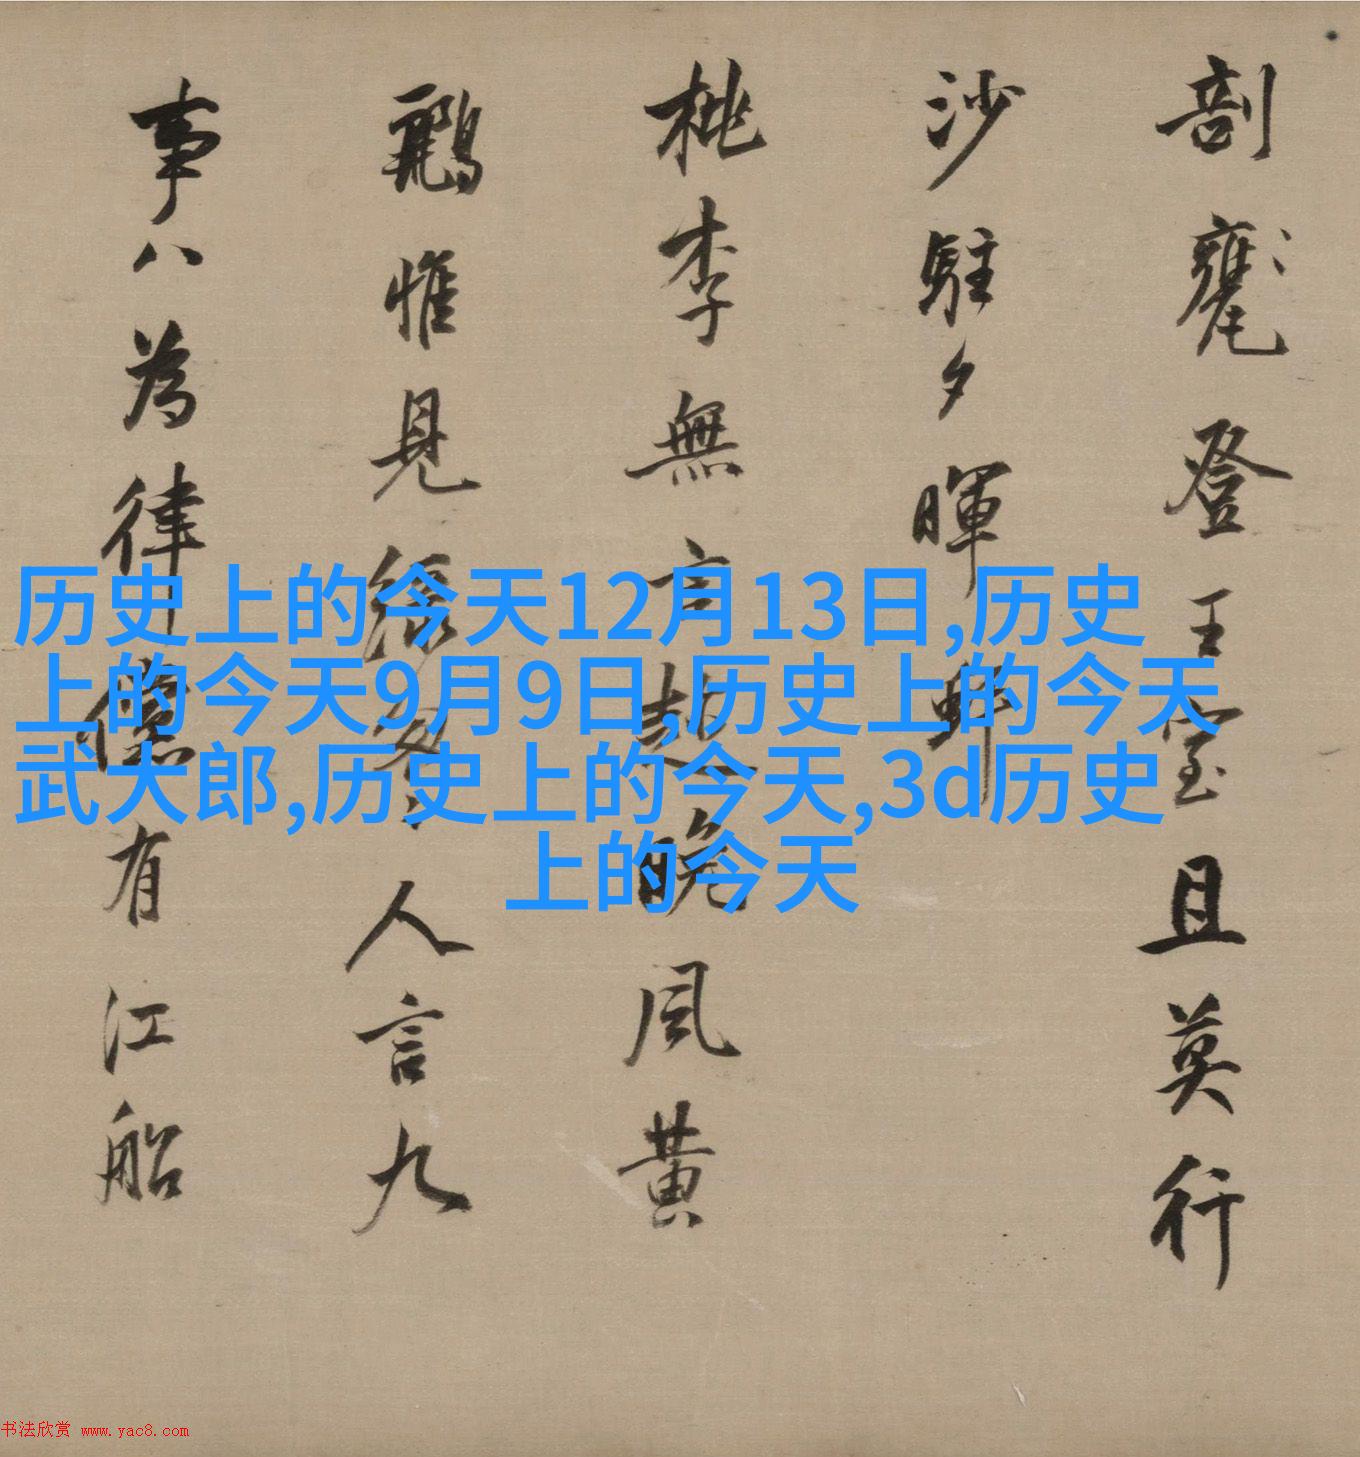 剖甕登王室且莫行
沙駐夕暉
桃李無言越晚風黃
鸝惟見綠匆〻人言九
事八為律儻有江船
历史上的今天12月13日,历史
上的今天9月9日,历史上的今天
武大郎,历史上的今天,3d历史
上的今天
书法欣赏 www.yac8.com